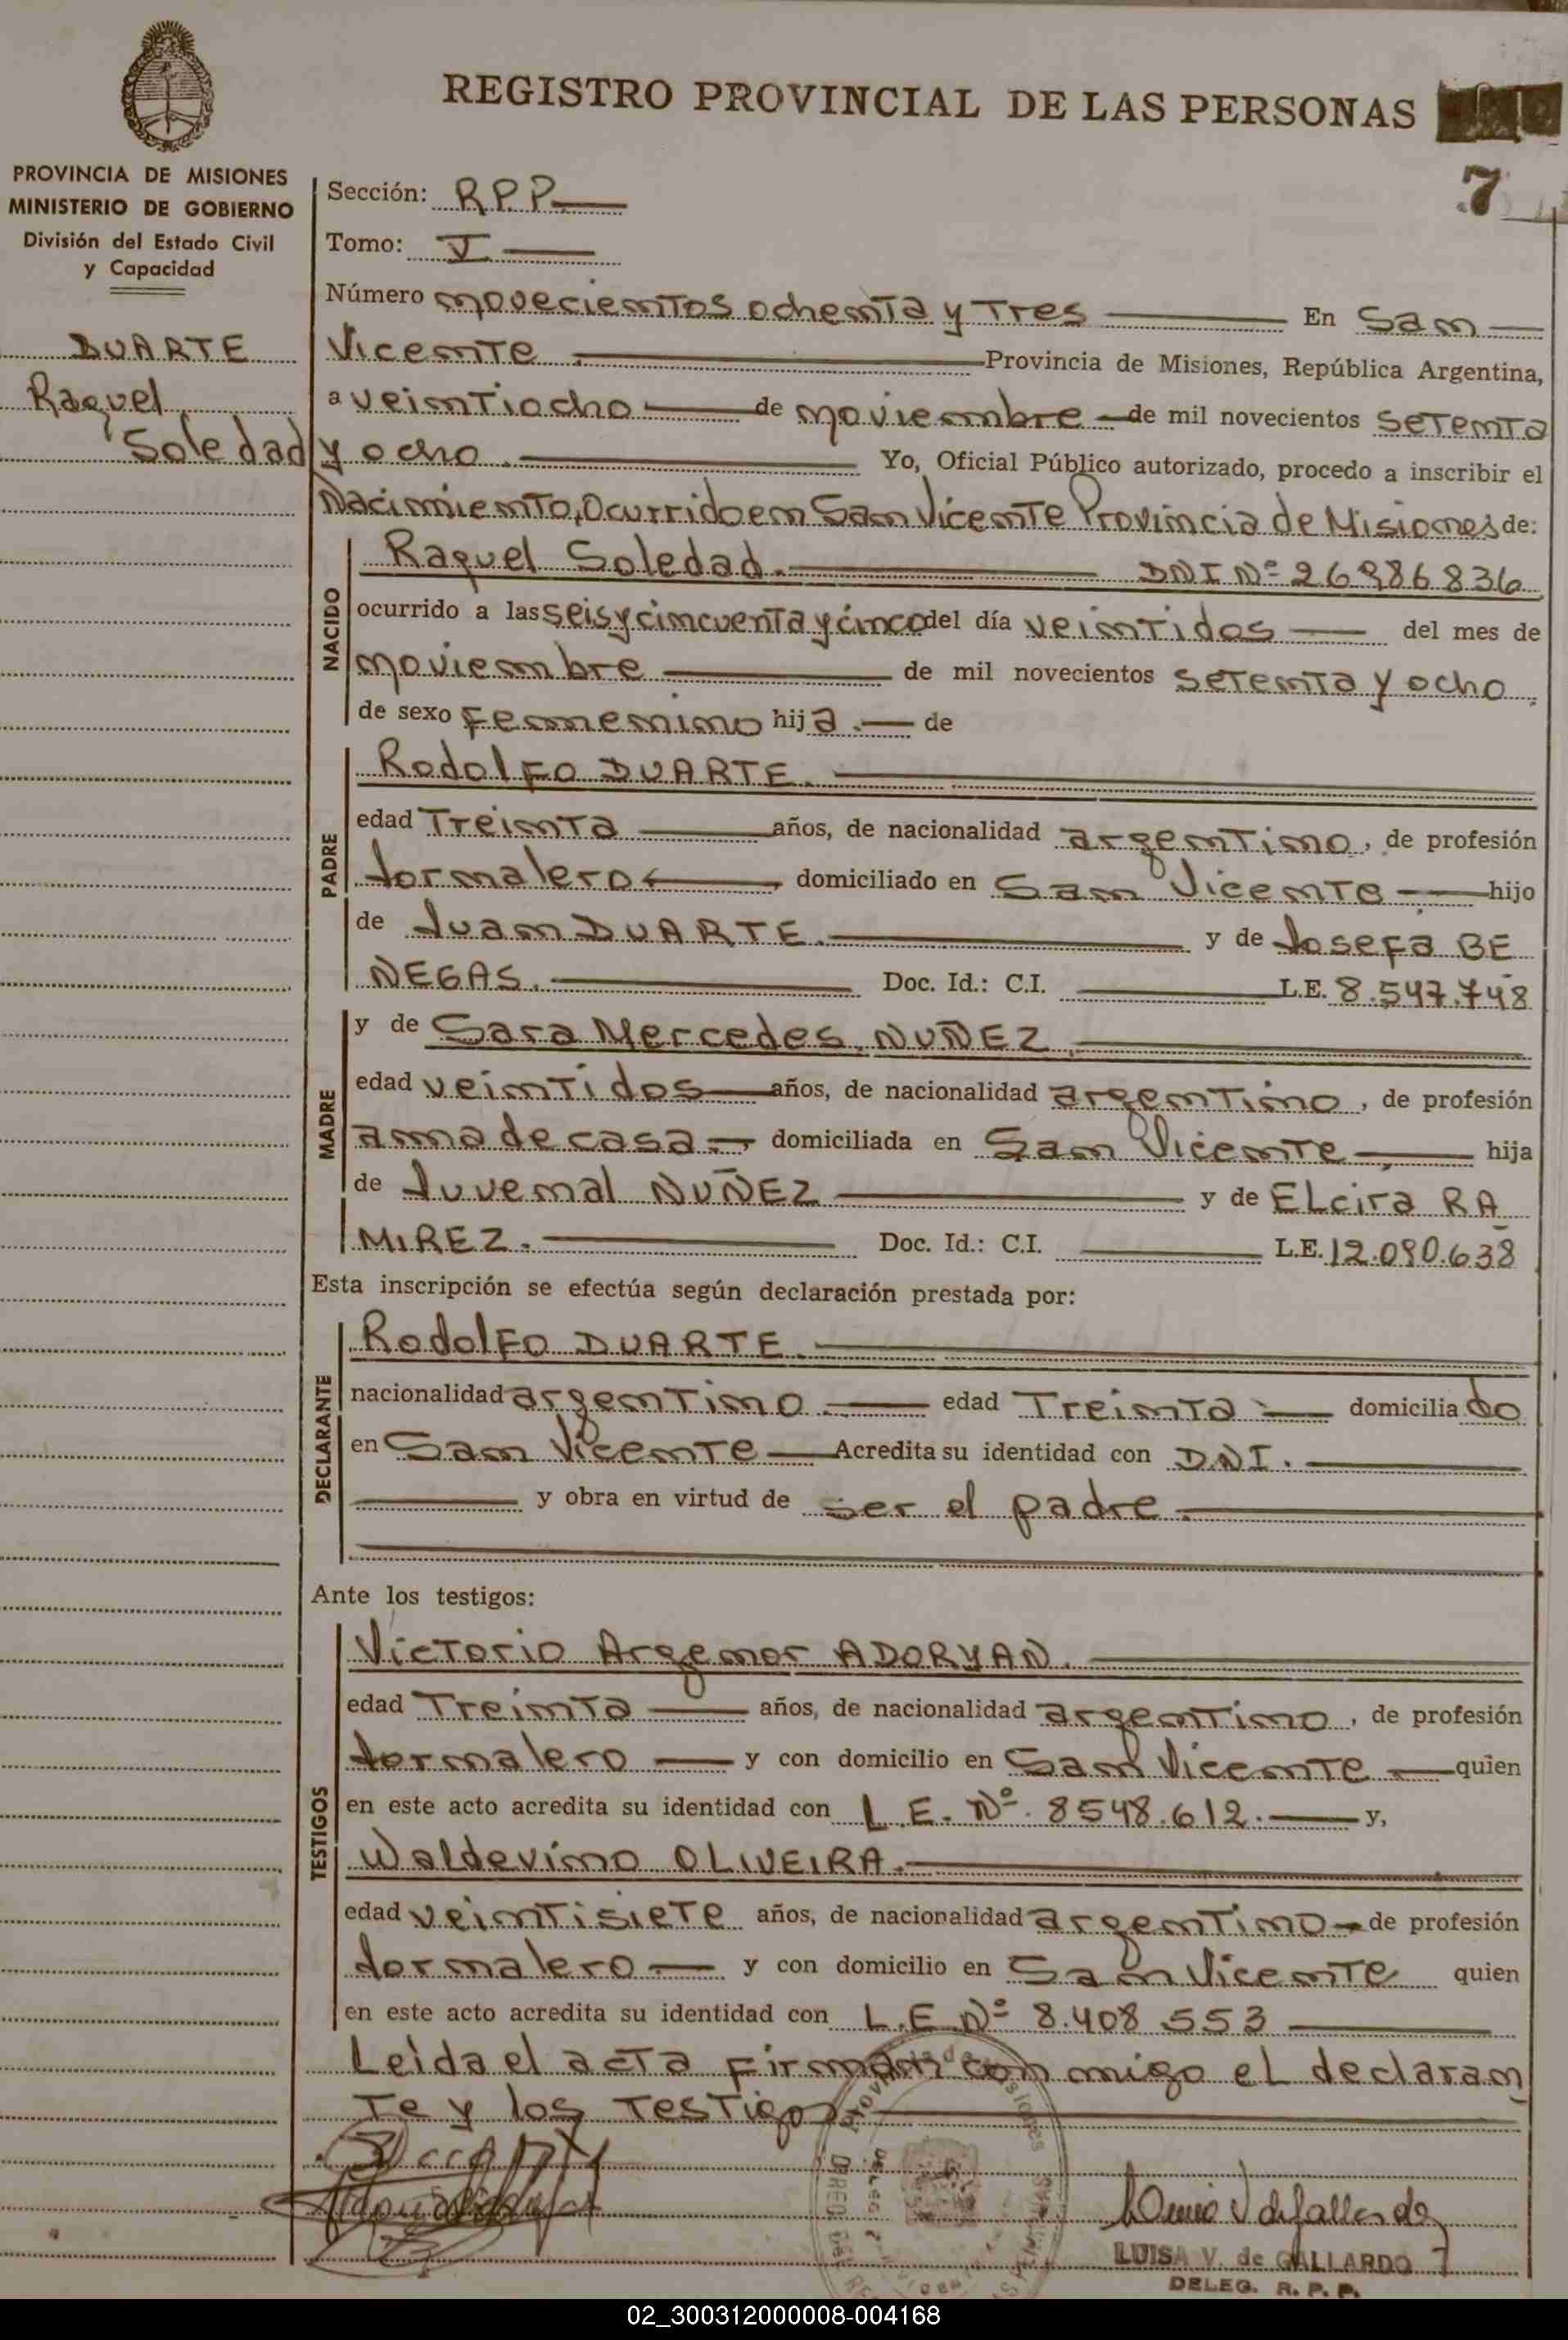 REGISTRO PROVINCIAL DE LAS PERSONAS
7
PROVINCIA DE MISIONES
MINISTERIO DE GOBIERNO
División del Estado Civil
y Capacidad
DUARTE
Raquel
Soledad
Sección: R.P.P.
Tomo: V
Número novecientos ochenta y tres En San
Vicente Provincia de Misiones, República Argentina,
a veintiocho de noviembre de mil novecientos setenta
y ocho. Yo, Oficial Público autorizado, procedo a inscribir el
Nacimiento, Ocurrido en San Vicente Provincia de Misiones de:
NACIDO
Raquel Soledad. DNI Nº 26986836
ocurrido a las seis y cincuenta y cinco del día veintidos del mes de
noviembre de mil novecientos setenta y ocho.
de sexo femenino hija. de
PADRE
Rodolfo DUARTE.
edad Treinta años, de nacionalidad argentino, de profesión
Jornalero domiciliado en San Vicente hijo
de Juan DUARTE. y de Josefa BE
NEGAS. Doc. Id.: C.I. L.E. 8.547.748
MADRE
y de Sara Mercedes NUÑEZ
edad veintidos años, de nacionalidad argentino, de profesión
ama de casa domiciliada en San Vicente hija
de Juvenal NUÑEZ y de Elcira RA
MIREZ. Doc. Id.: C.I. L.E. 12.090.638
Esta inscripción se efectúa según declaración prestada por:
DECLARANTE
Rodolfo DUARTE.
nacionalidad argentino. edad Treinta domiciliado
en San Vicente Acredita su identidad con DNI.
y obra en virtud de ser el padre.
Ante los testigos:
TESTIGOS
Victorio Argenor ADORYAN.
edad Treinta años, de nacionalidad argentino, de profesión
Jornalero y con domicilio en San Vicente quien
en este acto acredita su identidad con L.E. Nº 8548.612. y,
Waldevino OLIVEIRA.
edad veintisiete años, de nacionalidad argentino de profesión
Jornalero y con domicilio en San Vicente quien
en este acto acredita su identidad con L.E Nº 8.408.553
Leida el acta firman con migo el declaran
te y los testigos
LUISA V. de GALLARDO
DELEG. R. P. P.
02_300312000008-004168